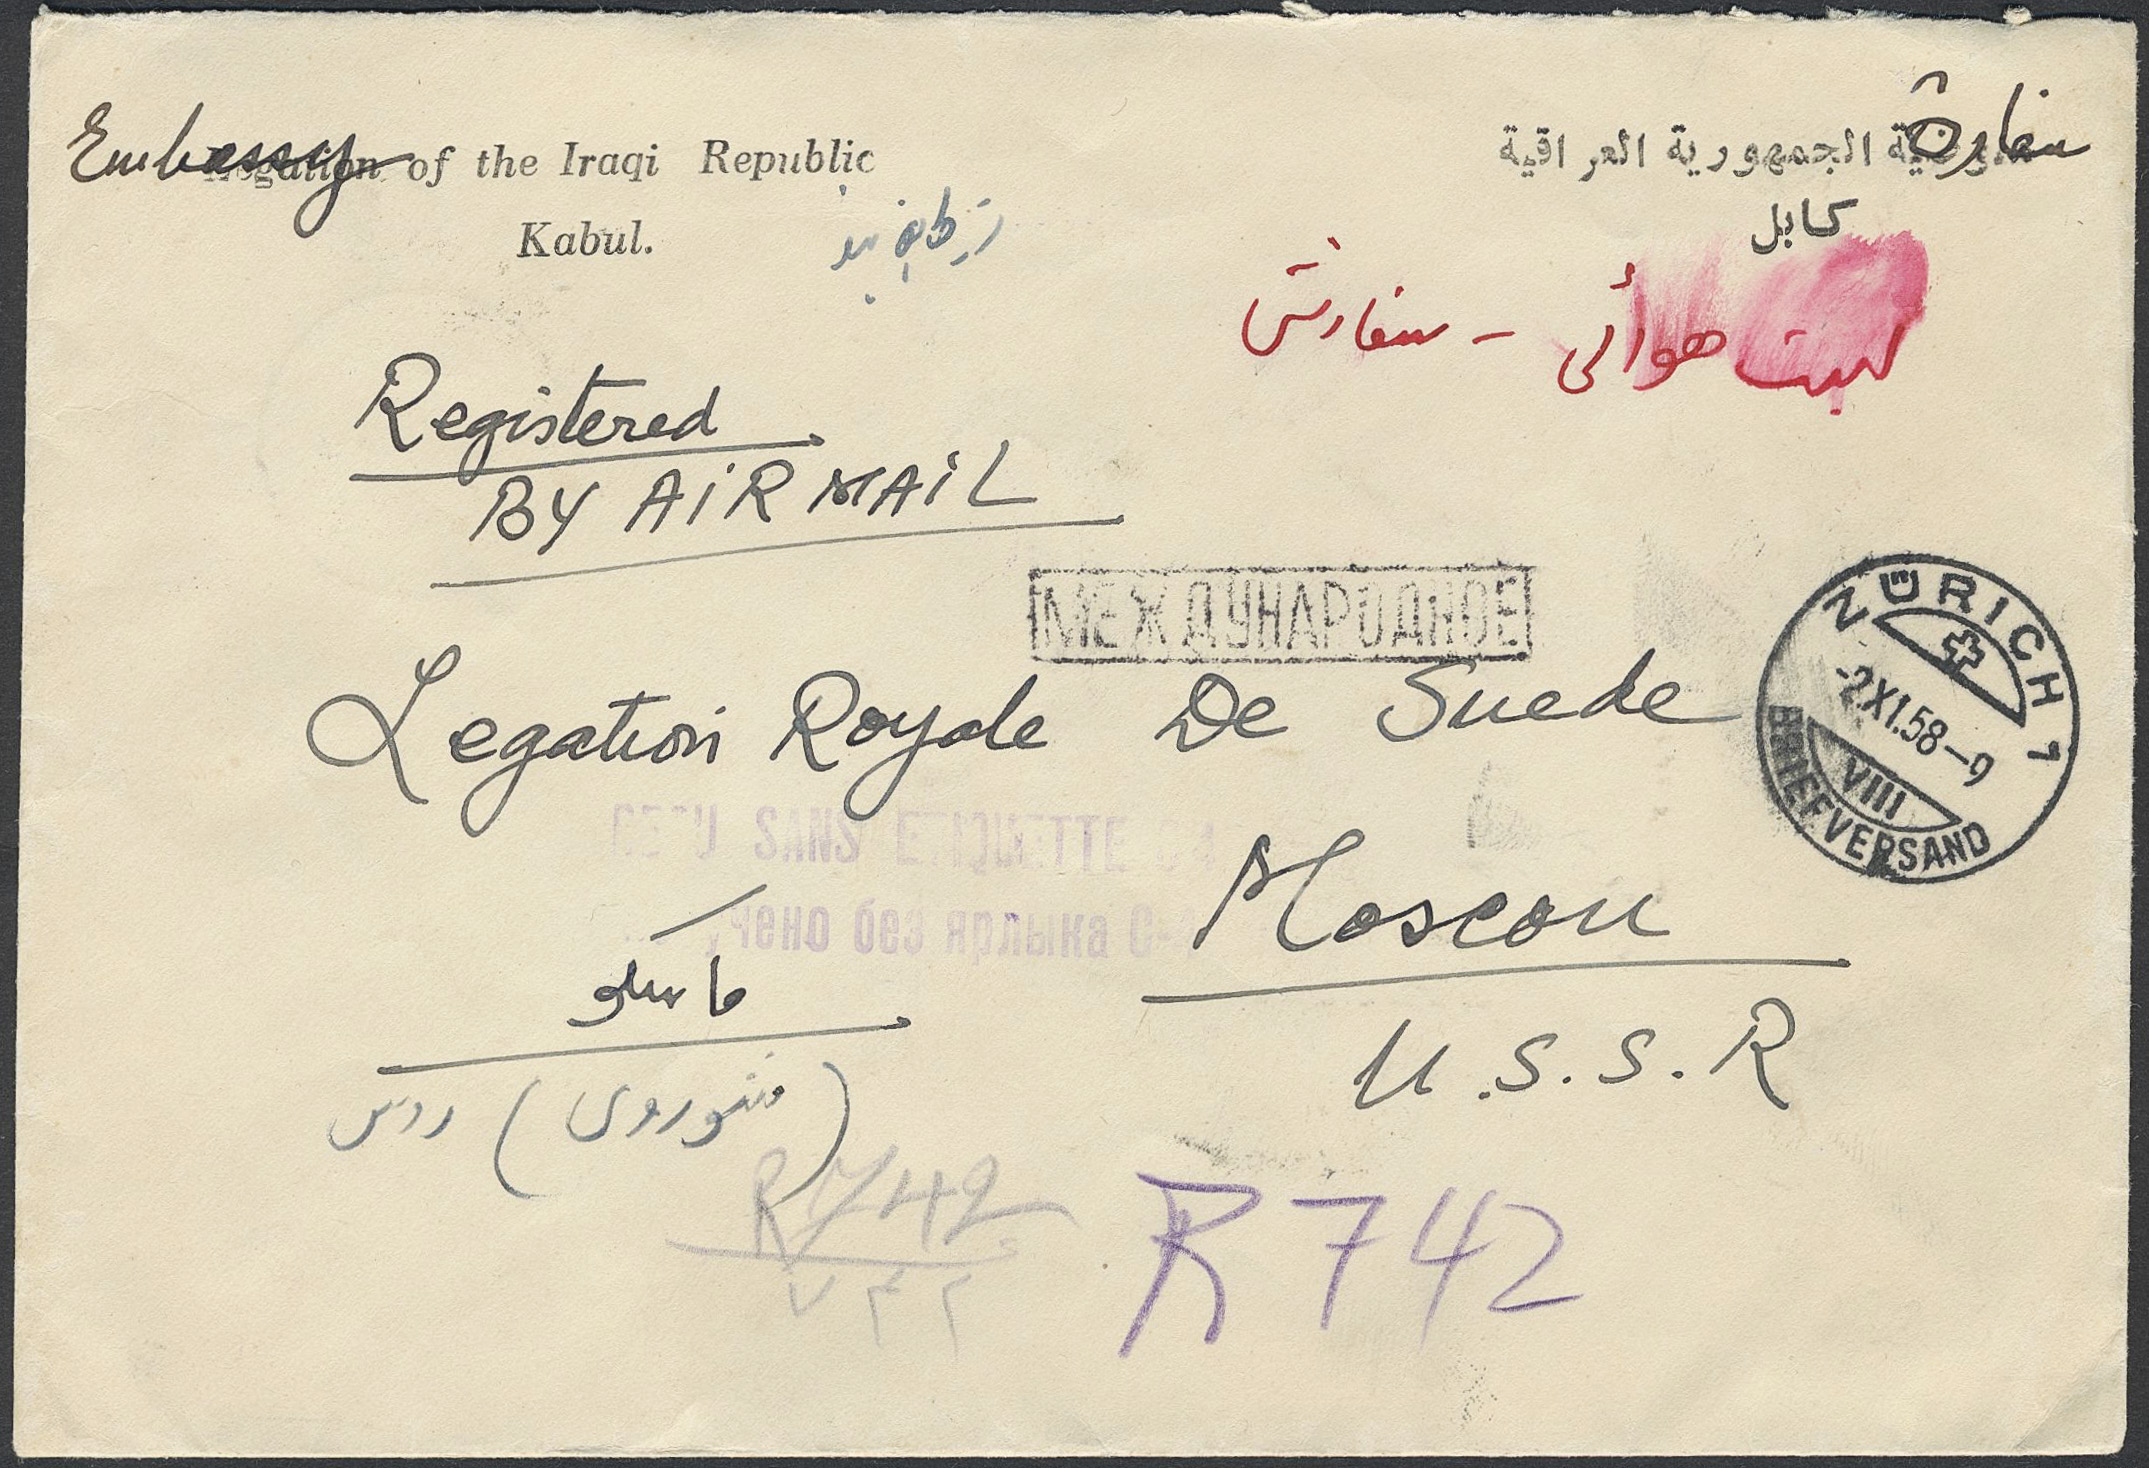 Embassy of the Iraqi Republic
Kabul.
سفارة الجمهورية العراقية
كابل
پست هوائی - سفارشی
Registered
BY AIR MAIL
МЕЖДУНАРОДНОЕ
ZÜRICH 1
-2.XI.58-9
VIII
BRIEFVERSAND
Legation Royale De Suede
SANS ETIQUETTE
чено без ярлыка С-
Moscou
U.S.S.R
ماسکو
روس (شوروی)
R 742
۷۴۲
R 742